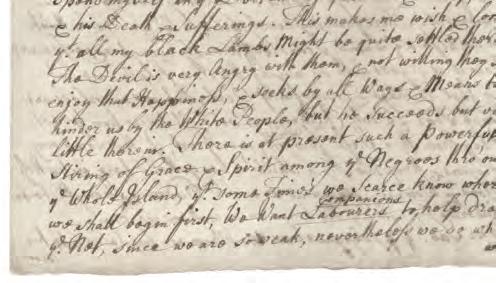 & his Death & Sufferings. This makes me wish & lon
yt. all my black Lambs Might be quite settled ther
The Devil is very Angry with them, & not willing they s
enjoy that Happiness, & seeks by all Ways & Means to
hinder us by the White People, but he Succeeds but v
little therein. There is at present such a Powerfu
Stiring of Grace & Spirit among ye Negroes thro'ou
ye Whole Island, yt. some Times we Scarce know wher
we shall begin first, We Want Labourers companions to help dra
ye Net, since we are so weak, nevertheless we do wh